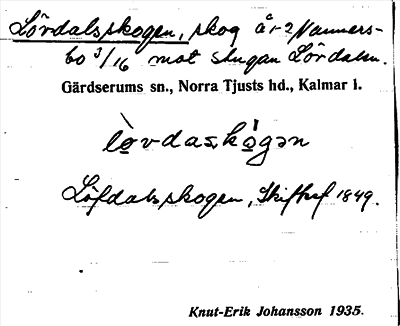 Lördalsskogen, skog å r 2 Nanners-
bo 3/16 mot stugan Lördalen.
Gärdserums sn., Norra Tjusts hd., Kalmar l.
Löfdalsskogen, Skifteef 1849.
Knut-Erik Johansson 1935.